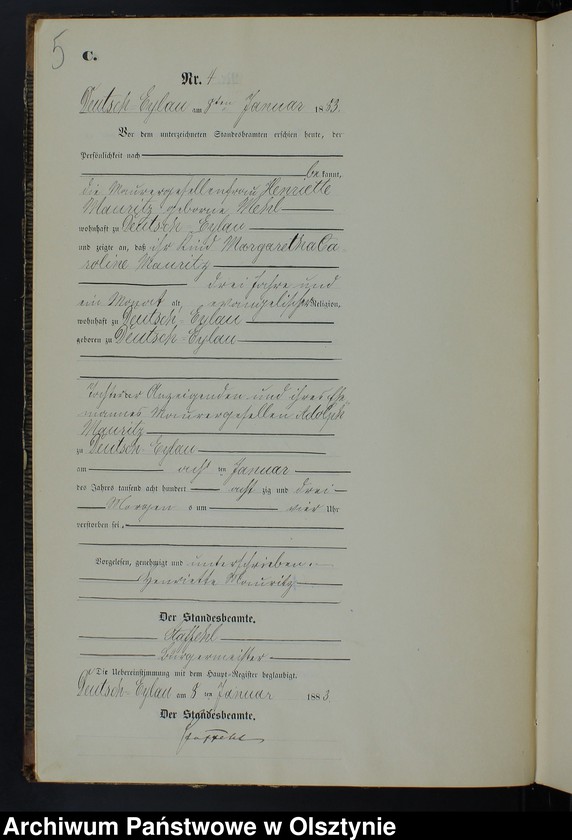 5
C.
Nr. 4
Deutsch-Eylau am 8ten Januar 1883.
Vor dem unterzeichneten Standesbeamten erschien heute, der
Persönlichkeit nach
bekannt,
die Maurergesellenfrau Henriette
Mauritz geborne Mehl
wohnhaft zu Deutsch-Eylau
und zeigte an, daß ihr Kind Margaretha Ca
roline Mauritz
drei Jahre und
ein Monat alt, evangelischer Religion,
wohnhaft zu Deutsch-Eylau
geboren zu Deutsch-Eylau
Tochter der Anzeigenden und ihres Ehe
mannes Maurergesellen Adolph
Mauritz
zu Deutsch-Eylau
am acht ten Januar
des Jahres tausend acht hundert acht zig und drei
Morgens um vier Uhr
verstorben sei.
Vorgelesen, genehmigt und unterschrieben.
Henriette Mauritz
Der Standesbeamte.
Staffehl
Bürgermeister
Die Uebereinstimmung mit dem Haupt-Register beglaubigt.
Deutsch-Eylau am 8 ten Januar 1883.
Der Standesbeamte.
Staffehl
Archiwum Państwowe w Olsztynie